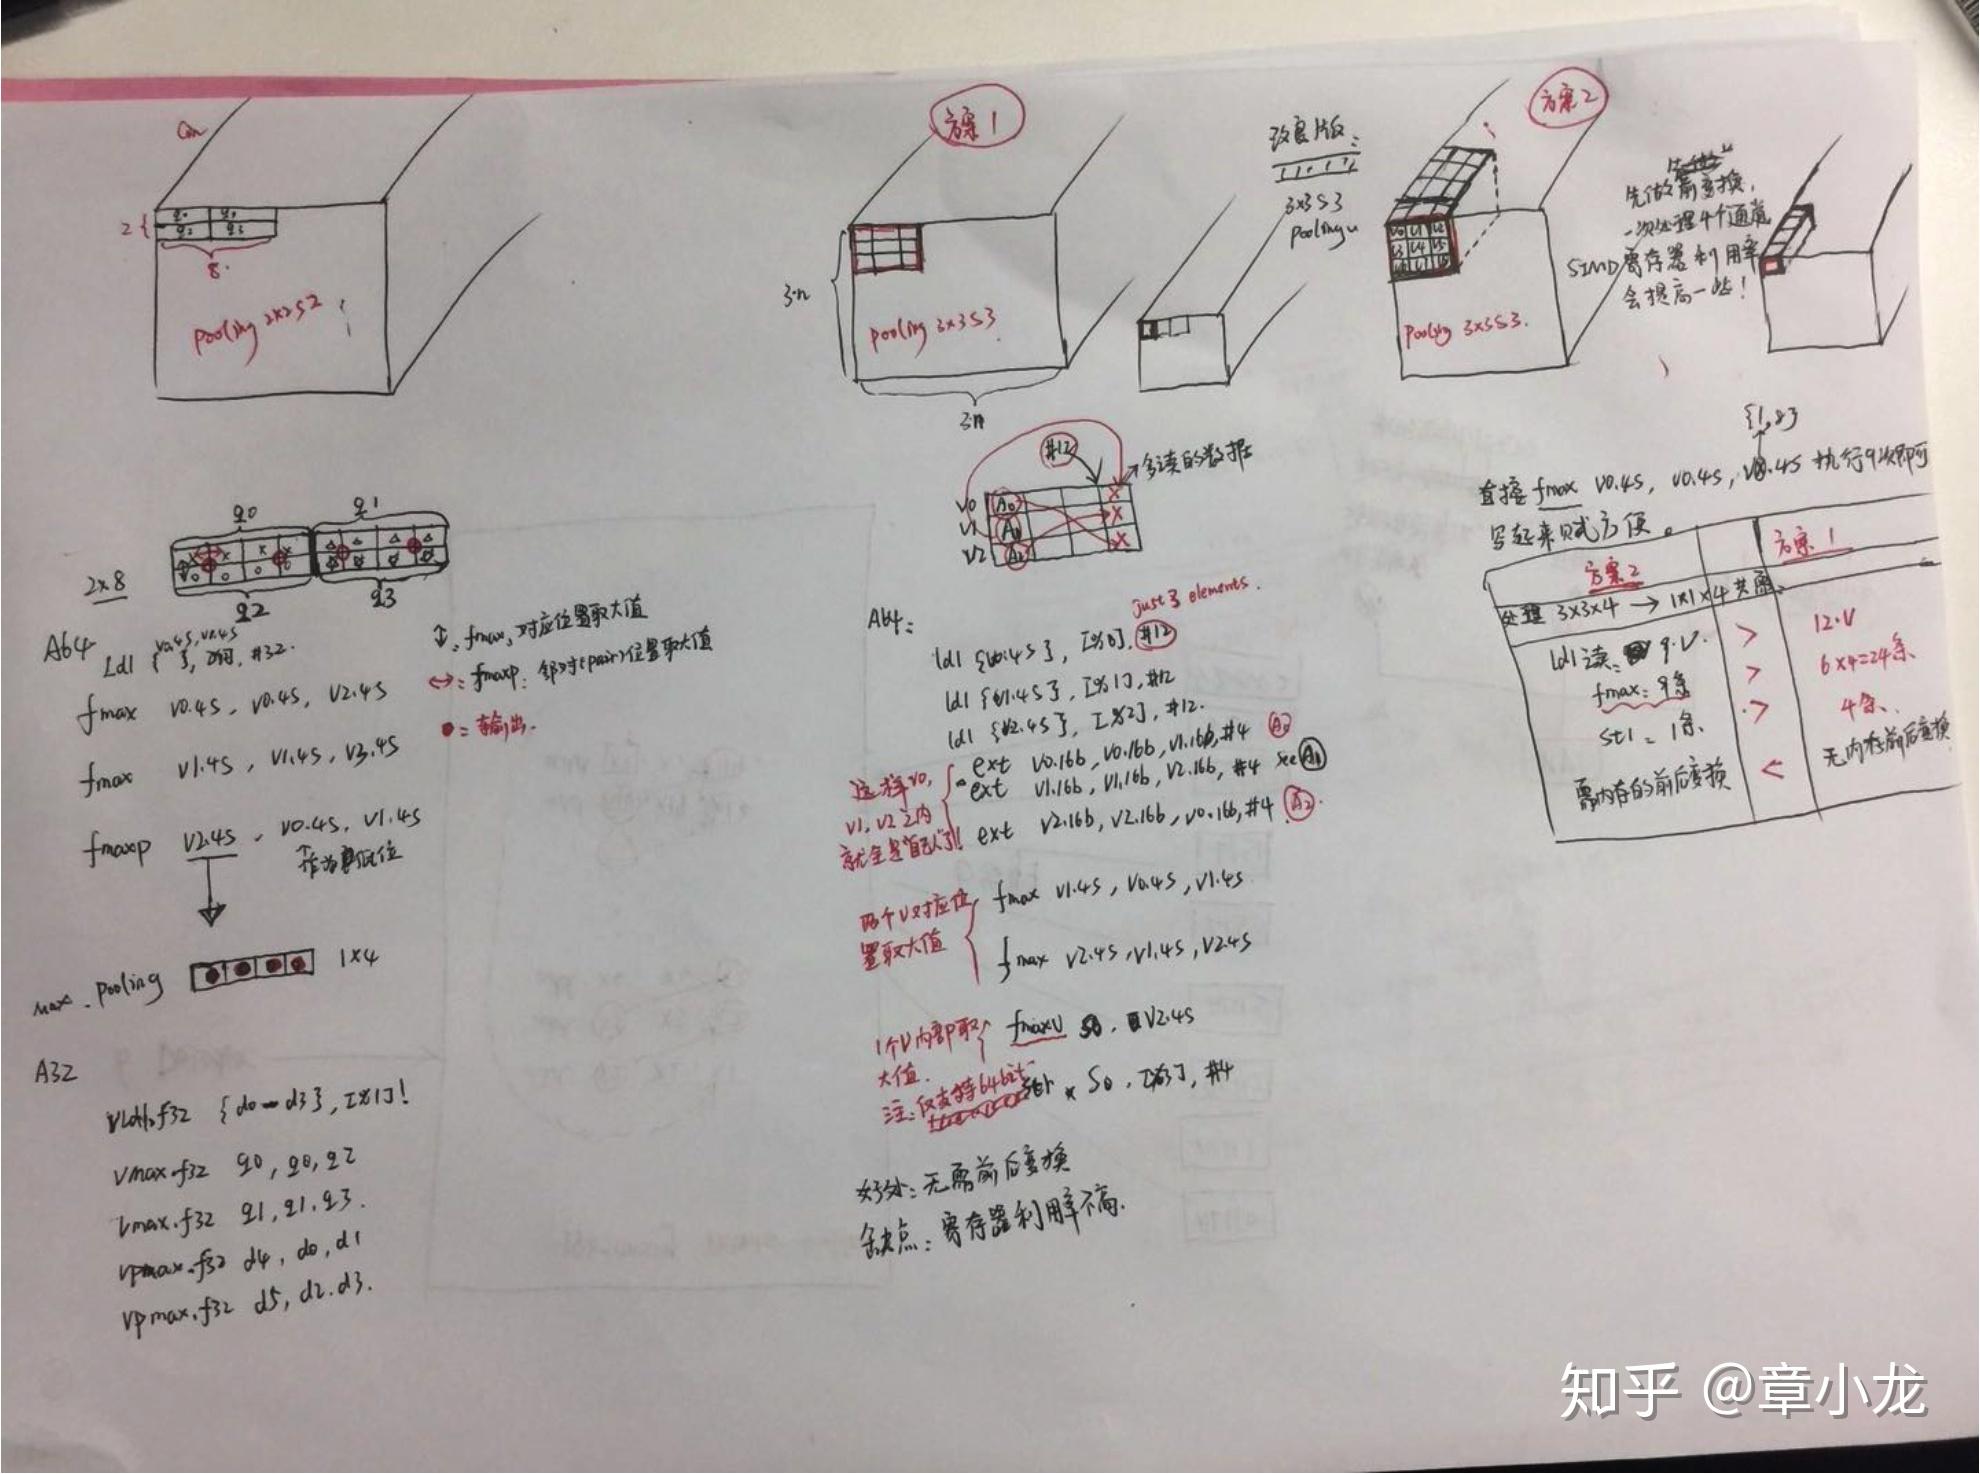 Cin
2{
q0 q1
q2 q3
8
pooling 2x2S2
q0 q1
2x8
q2 q3
A64
v0.4s, v1.4s
ld1 { }, #32.
fmax v0.4s, v0.4s, v2.4s
fmax v1.4s, v1.4s, v3.4s
fmaxp v2.4s, v0.4s, v1.4s
作为低位
↕: fmax, 对应位置取大值
↔: fmaxp: 邻对(pair)位置取大值
●=输出.
max. pooling 1x4
A32
vld1.f32 {d0-d3}, [%1]!
vmax.f32 q0, q0, q2
vmax.f32 q1, q1, q3.
vpmax.f32 d4, d0, d1
vpmax.f32 d5, d2, d3.
方案1
3·n
pooling 3x3S3
3·n
改良版:
3x3S3
pooling
#12
多读的数据
v0 A0 X
v1 A1 X
v2 A2 X
A64:
just 3 elements.
ld1 {v0.4s}, [%0], #12
ld1 {v1.4s}, [%1], #12
ld1 {v2.4s}, [%2], #12.
ext v0.16b, v0.16b, v1.16b, #4 A0
ext v1.16b, v1.16b, v2.16b, #4 see A1
ext v2.16b, v2.16b, v0.16b, #4 A2.
这样v0,
v1, v2之内
就全是"自己人"了!
fmax v1.4s, v0.4s, v1.4s
fmax v2.4s, v1.4s, v2.4s
两个V对应位
置取大值
1个V内部取
大值.
fmaxv s0, v2.4s
注: 仅支持64bit
str s0, [%3], #4
好处: 无需前后变换
缺点: 寄存器利用率不高.
方案2
v0 v1 v2
v3 v4 v5
pooling 3x3S3.
先做前变换,
一次处理4个通道
SIMD寄存器利用率
会提高一些!
{1,8}
直接fmax v0.4s, v0.4s, v0.4s 执行9次即可
写起来贼方便。
方案2 方案1
处理 3x3x4 → 1x1x4 共需
ld1读: 9·V. > 12·V
fmax: 9条 > 6x4=24条
st1: 1条 > 4条.
需内存的前后变换 < 无内存前后变换
知乎 @章小龙